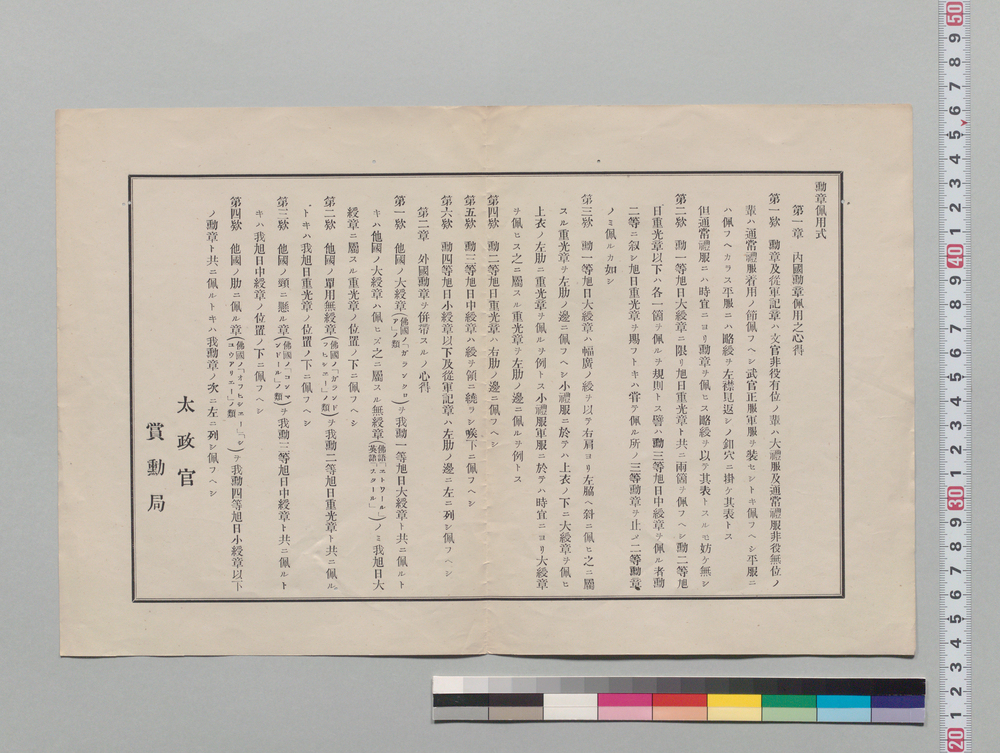 勳章佩用式
第一章　內國勳章佩用之心得
第一欵　勳章及從軍記章ハ文官非役有位ノ輩ハ大禮服及通常禮服非役無位ノ
輩ハ通常禮服着用ノ節佩フヘシ武官正服軍服ヲ裝セシトキ佩フヘシ平服ニ
ハ佩フヘカラス平服ニハ略綬ヲ左襟見返シノ釦穴ニ掛ケ其表トス
但通常禮服ニハ時宜ニヨリ勳章ヲ佩ヒス略綬ヲ以テ其表トスルモ妨ケ無シ
第二欵　勳一等旭日大綬章ニ限リ旭日重光章ト共ニ兩箇ヲ佩フヘシ勳二等旭
日重光章以下ハ各一箇ヲ佩ルヲ規則トス譬ハ勳三等旭日中綬章ヲ佩ル者勳
二等ニ叙シ旭日重光章ヲ賜フトキハ嘗テ佩ル所ノ三等勳章ヲ止メ二等勳章
ノミ佩ルカ如シ
第三欵　勳一等旭日大綬章ハ幅廣ノ綬ヲ以テ右肩ヨリ左脇ヘ斜ニ佩ヒ之ニ屬
スル重光章ヲ左肋ノ邊ニ佩フヘシ小禮服ニ於テハ上衣ノ下ニ大綬章ヲ佩ヒ
上衣ノ左肋ニ重光章ヲ佩ルヲ例トス小禮服軍服ニ於テハ時宜ニヨリ大綬章
ヲ佩ヒス之ニ屬スル重光章ヲ左肋ノ邊ニ佩ルヲ例トス
第四欵　勳二等旭日重光章ハ右肋ノ邊ニ佩フヘシ
第五欵　勳三等旭日中綬章ハ綬ヲ領ニ繞ラシ喉下ニ佩フヘシ
第六欵　勳四等旭日小綬章以下及從軍記章ハ左肋ノ邊ニ左ニ列シ佩フヘシ
第二章　外國勳章ヲ併帶スルノ心得
第一欵　他國ノ大綬章(佛國ノ「ガランクロア」ノ類)ヲ我勳一等旭日大綬章ト共ニ佩ルト
キハ他國ノ大綬章ハ佩ヒズ之ニ屬スル無綬章(佛語「エトワール」英語「スタール」)ノミ我旭日大
綬章ニ屬スル重光章ノ位置ノ下ニ佩フヘシ
第二欵　他國ノ單用無綬章(佛國ノ「ガランドフヒシエー」ノ類)ヲ我勳二等旭日重光章ト共ニ佩ル
トキハ我旭日重光章ノ位置ノ下ニ佩フヘシ
第三欵　他國ノ頸ニ懸ル章(佛國ノ「コンマンドール」ノ類)ヲ我勳三等旭日中綬章ト共ニ佩ルト
キハ我旭日中綬章ノ位置ノ下ニ佩フヘシ
第四欵　他國ノ肋ニ佩ル章(佛國「オフヒシエー」「シユウアリエー」ノ類)ヲ我勳四等旭日小綬章以下
ノ勳章ト共ニ佩ルトキハ我勳章ノ次ニ左ニ列シ佩フヘシ
太政官
賞勳局